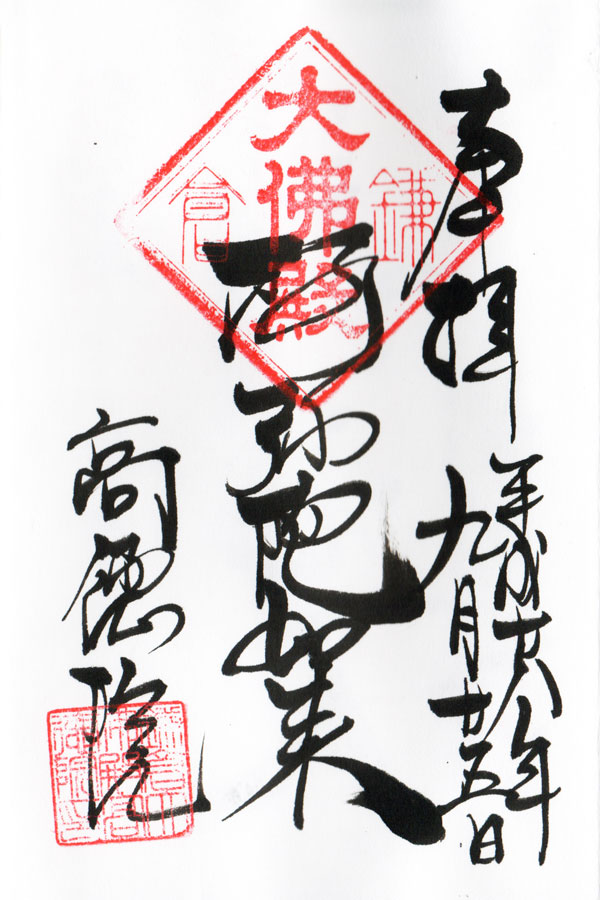 奉拝
平成廿八年
九月廿五日
鎌倉
大佛殿
阿弥陀如来
高徳院